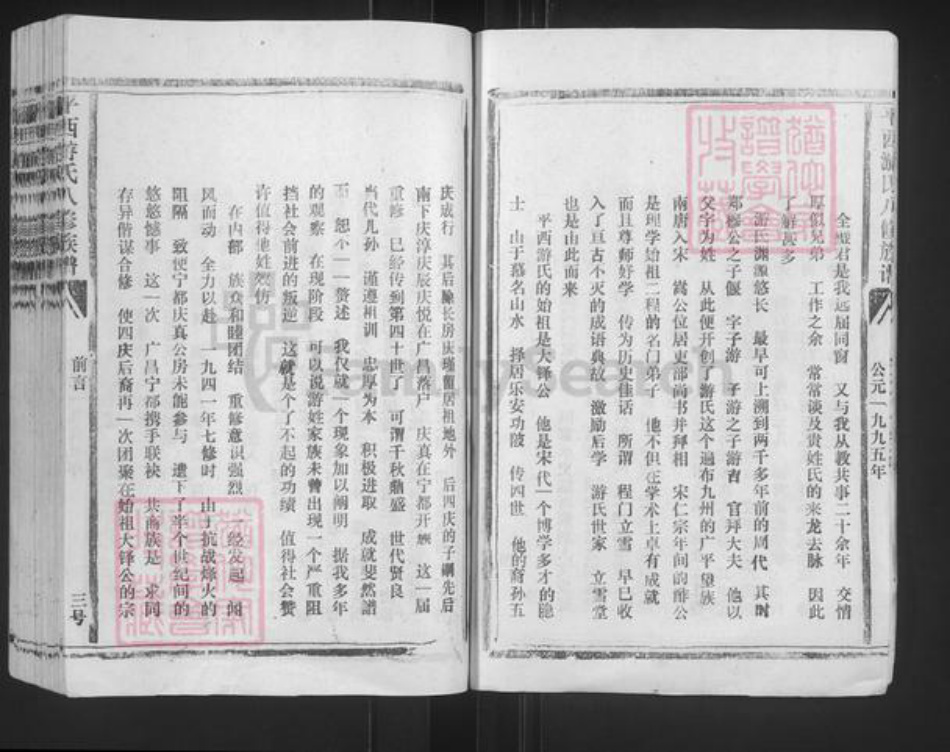 平西游氏八修族谱
公元一九九五年
全煅君是我远届同窗 又与我从教共事二十余年 交情
厚似兄弟 工作之余 常常谈及贵姓氏的来龙去脉 因此
了解颇多
游氏渊源悠长 最早可上溯到两千多年前的周代 其时
郑穆公之子偃 字子游 子游之子游吉 官拜大夫 他以
父字为姓 从此便开创了游氏这个遍布九州的广平望族
南唐入宋 嵩公位居吏部尚书并拜相 宋仁宗年间的酢公
是理学始祖二程的名门弟子 他不但在学术上卓有成就
而且尊师好学 传为历史佳话 所谓 程门立雪 早已收
入了亘古不灭的成语典故 激励后学 游氏世家 立雪堂
也是由此而来
平西游氏的始祖是大铎公 他是宋代一个博学多才的隐
士 由于慕名山水 择居乐安功陂 传四世 他的裔孙五
庆成行 其后除长房庆瑾留居祖地外 后四庆的子嗣先后
南下庆淳庆辰庆悦在广昌落户 庆真在宁都开族 这一届
重修 已经传到第四十世了 可谓千秋鼎盛 世代贤良
当代儿孙 谨遵祖训 忠厚为本 积极进取 成就斐然谱
而 恕不一一赘述 我仅就一个现象加以阐明 据我多年
的观察 在现阶段 可以说游姓家族未曾出现一个严重阻
挡社会前进的叛逆 这就是个了不起的功绩 值得社会赞
许值得他姓效仿
在内部 族众和睦团结 重修意识强烈 一经发起 闻
风而动 全力以赴 一九四一年七修时 由于抗战烽火的
阻隔 致使宁都庆真公房未能参与 遗下了半个世纪间的
悠悠憾事 这一次 广昌宁都携手联袂 共商族是 求同
存异偕谋合修 使四庆后裔再一次团聚在始祖大铎公的宗
平西游氏八修族谱
前言
三号
FamilySearch